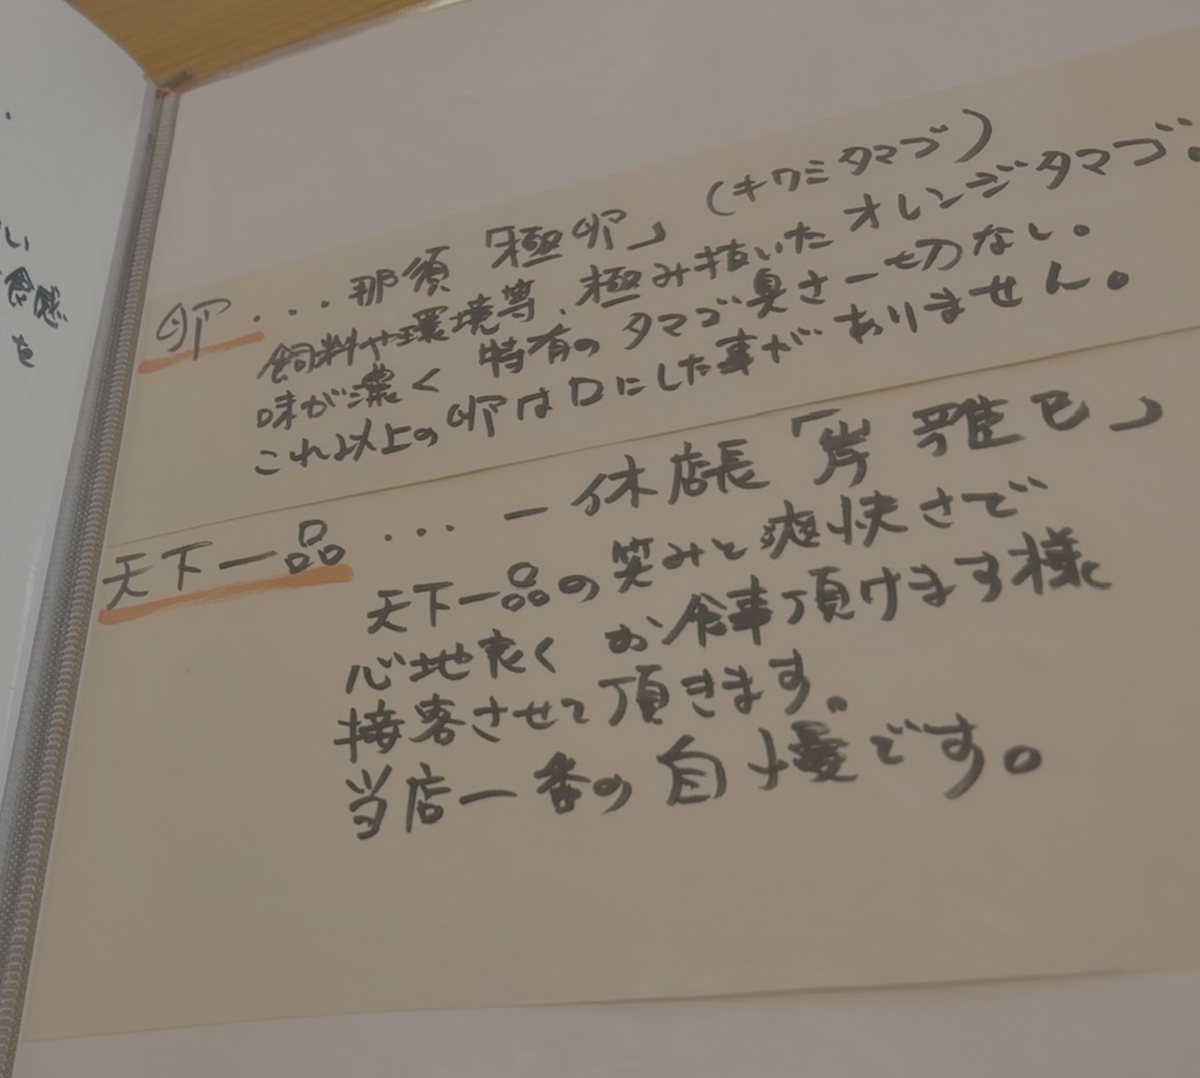 い
食感
を
卵...那須「極卵」(キワミタマゴ)
飼料や環境等、極み抜いたオレンジタマゴ。
味が濃く 特有のタマゴ臭さ一切ない。
これ以上の卵は口にした事がありません。
天下一品...一休店長「岸 雅巳」
天下一品の笑みと爽快さで
心地良く お食事頂けます様
接客させて頂きます。
当店一番の自慢です。